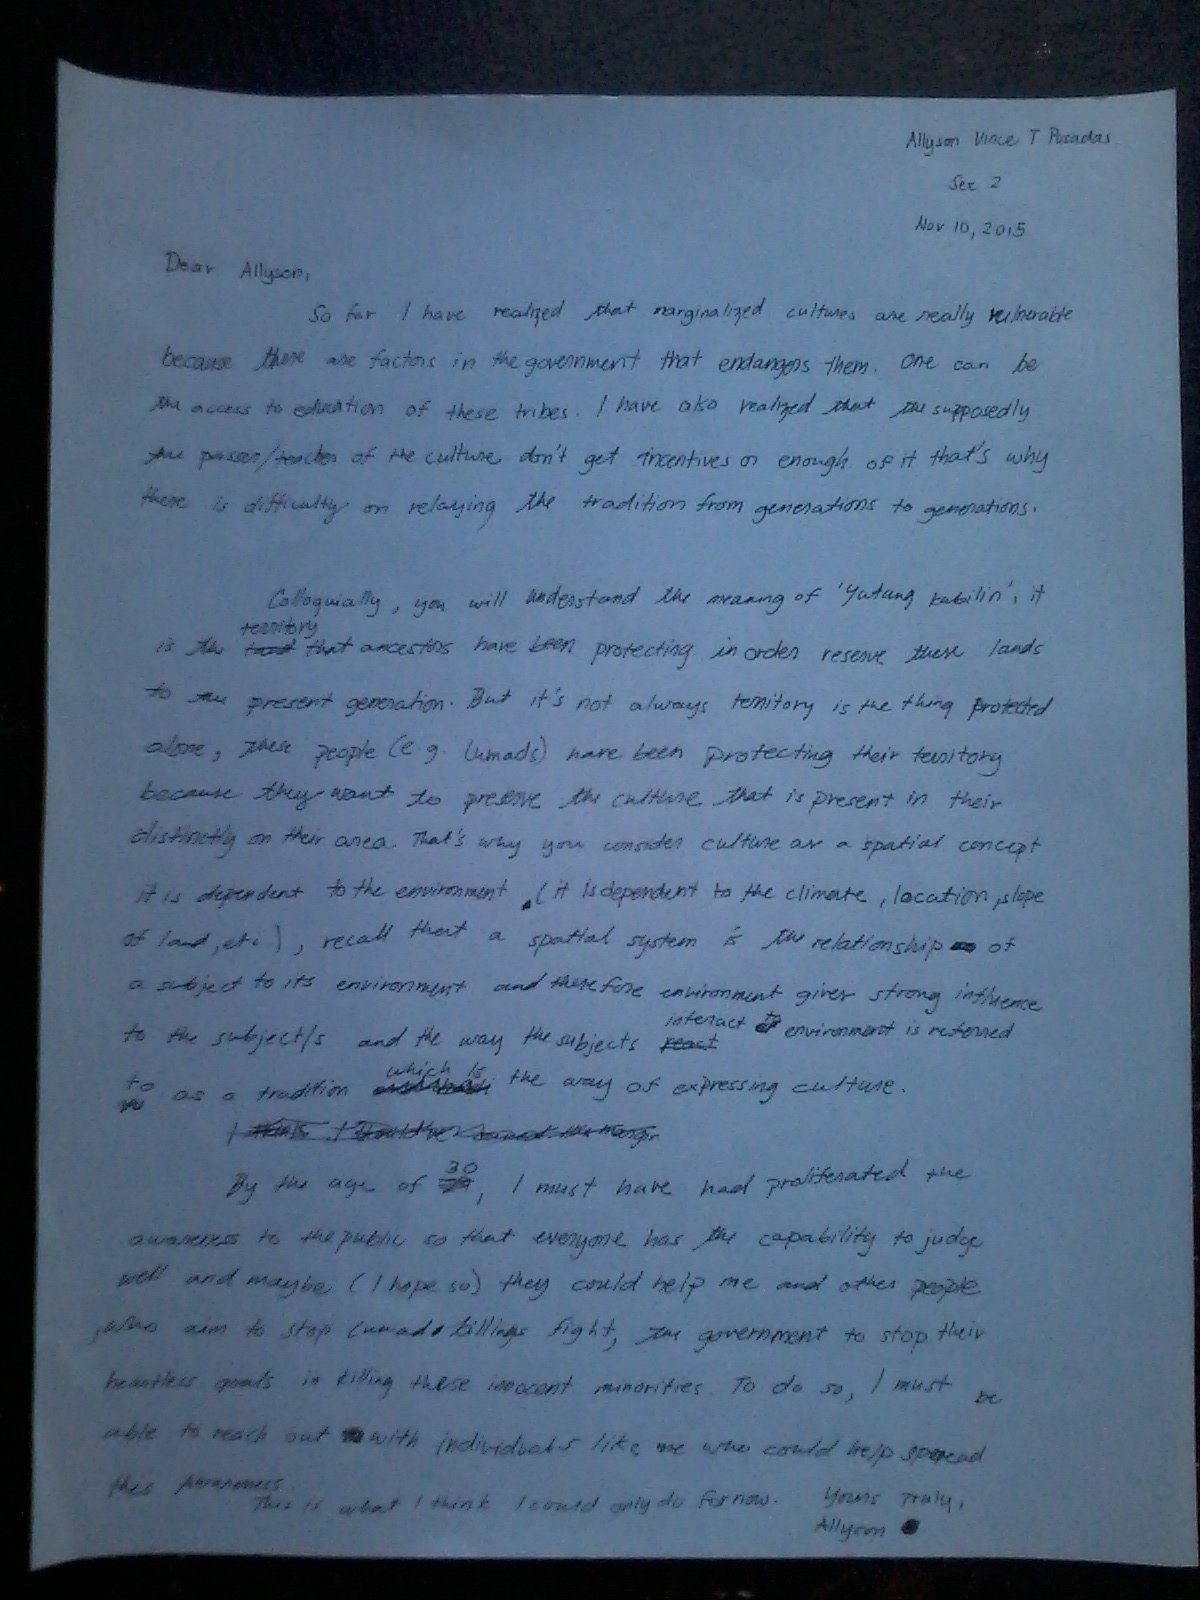 Allyson Vince T Posadas
Sec 2
Nov 10, 2015
Dear Allyson,
So far I have realized that marginalized cultures are really vulnerable
because there are factors in the government that endangers them. One can be
the access to education of these tribes. I have also realized that the supposedly
the passer/teacher of the culture don't get incentives or enough of it that's why
there is difficulty on relaying the tradition from generations to generations.
Colloquially, you will understand the meaning of 'Yutang Kabilin', it
is the territory that ancestors have been protecting in order reserve these lands
to the present generation. But it's not always territory is the thing protected
alone, these people (e.g. Lumads) have been protecting their territory
because they want to preserve the culture that is present in their
distinctly on their area. That's why you consider culture as a spatial concept
it is dependent to the environment. (it is dependent to the climate, location, slope
of land, etc), recall that a spatial system is the relationship of
a subject to its environment and therefore environment gives strong influence
to the subject/s and the way the subjects interact to environment is referred
to as a tradition which is the way of expressing culture.
By the age of 30, I must have had proliferated the
awareness to the public so that everyone has the capability to judge
well and maybe (I hope so) they could help me and other people
who aim to stop Lumads killings fight, the government to stop their
heartless goals in killing these innocent minorities. To do so, I must be
able to reach out with individuals like me who could help spread
this Awareness.
This is what I think I could only do for now.
Yours Truly,
Allyson